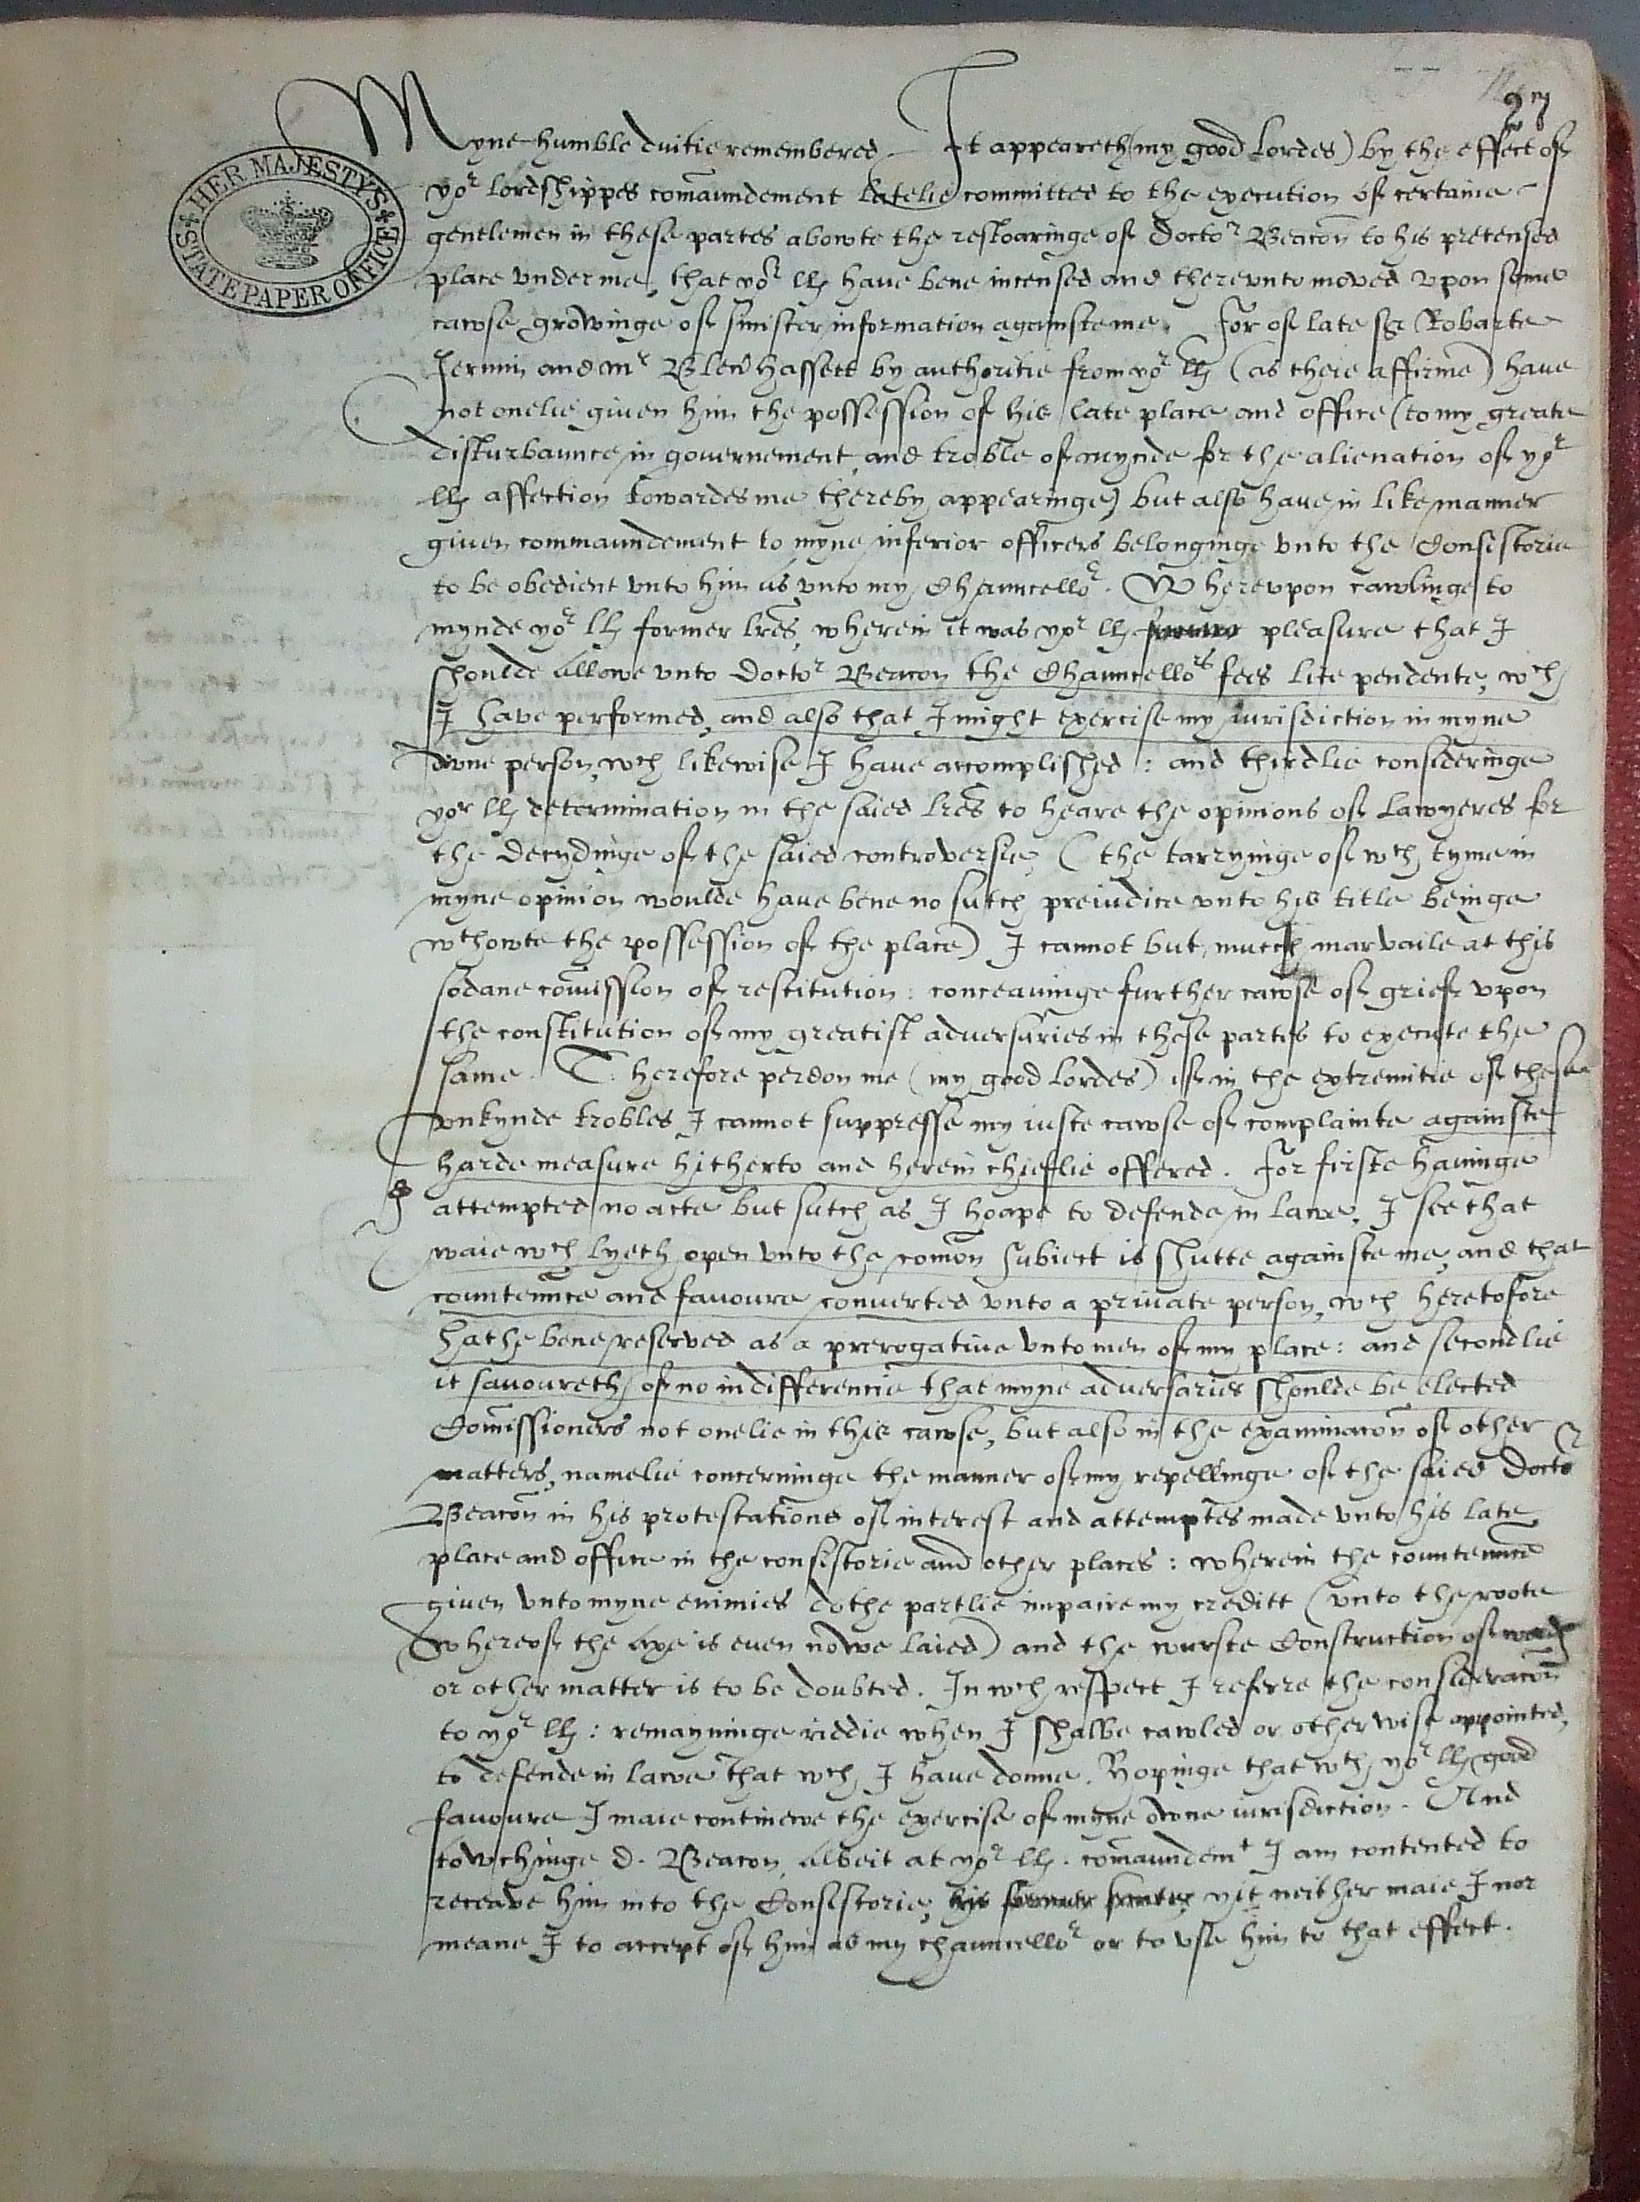 27
HER MAJESTY'S
STATE PAPER OFFICE
Myne humble duitie remembered It appeareth (my good Lordes) by the effect of
yor lordshippes comaundement latelie committed to the execution of certaine
gentlemen in these partes abowte the restoaringe of Doctor Beacon to his pretensed
place vnder me, that yor llp have bene incensed and therevnto moved vpon some
cawse growinge of sinister information againste me. For of late Sr Robarte
Jermin and mr Blenhassett by authoritie from yor llp (as theie affirme) have
not onelie given him the possession of his late place and office (to my greate
disturbaunce in governement and troble of mynde for the alienation of yor
llp affection towardes me thereby appearinge) but also have in like manner
given commaundement to myne inferior officers belonginge vnto the Consistorie
to be obedient vnto him as vnto my Chauncellor. Wherevpon cawlinge to
mynde yor llp former lres, wherein it was yor llp pleasure that I
shoulde allowe vnto Doctor Beacon the Chauncellors fees lite pendente, wch
I have performed, and also that I might exercise my iurisdiction in myne
owne person, wch likewise I have accomplished : and thirdlie consideringe
yor llp determination in the saied lres to heare the opinions of Lawyeres for
the decydinge of the saied controversie, (the tarryinge of wch tyme in
myne opinion woulde have bene no sutch preiudice vnto his title beinge
wthowte the possession of the place) I cannot but mutch marvaile at this
sodane comission of restitution : conceauinge further cawse of grief vpon
the constitution of my greatist adversaries in these partes to execute the
same. Therefore perdon me (my good Lordes) if in the extremitie of these
vnkynde trobles I cannot suppresse my iuste cawse of complainte againste
harde measure hitherto and herein chieflie offered. For firste havinge
attempted no acte but sutch as I hoape to defende in lawe, I see that
waie wch lyeth open vnto the comon subiect is shutte againste me, and that
countenance and favoure converted vnto a private person, wch heretofore
hathe bene reserved as a prerogative vnto men of my place : and secondlie
it savoureth of no indifferencie that myne adversaries shoulde be elected
Comissioners not onelie in this cawse, but also in the examinacon of other
matters, namelie concerninge the manner of my repellinge of the saied Doctor
Beacon in his protestations of interest and attemptes made vnto his late
place and office in the consistorie and other places : wherein the countenance
given vnto myne enimies dothe partlie impaire my creditt (vnto the roote
whereof the axe is even nowe laied) and the wurste Construction of wordes
or other matter is to be doubted. In wch respect I referre the consideracon
to yor llp : remayninge riddie when I shalbe cawled or otherwise appointed,
to defende in lawe that wch I have donne. Hopinge that wth yor llp good
favoure I maie continewe the exercise of myne owne iurisdiction. And
towchinge D. Beacon, albeit at yor llp. comaundemt I am contented to
receave him into the Consistorie, yit neither maie I nor
meane I to accept of him as my chauncellor or to vse him to that effect.